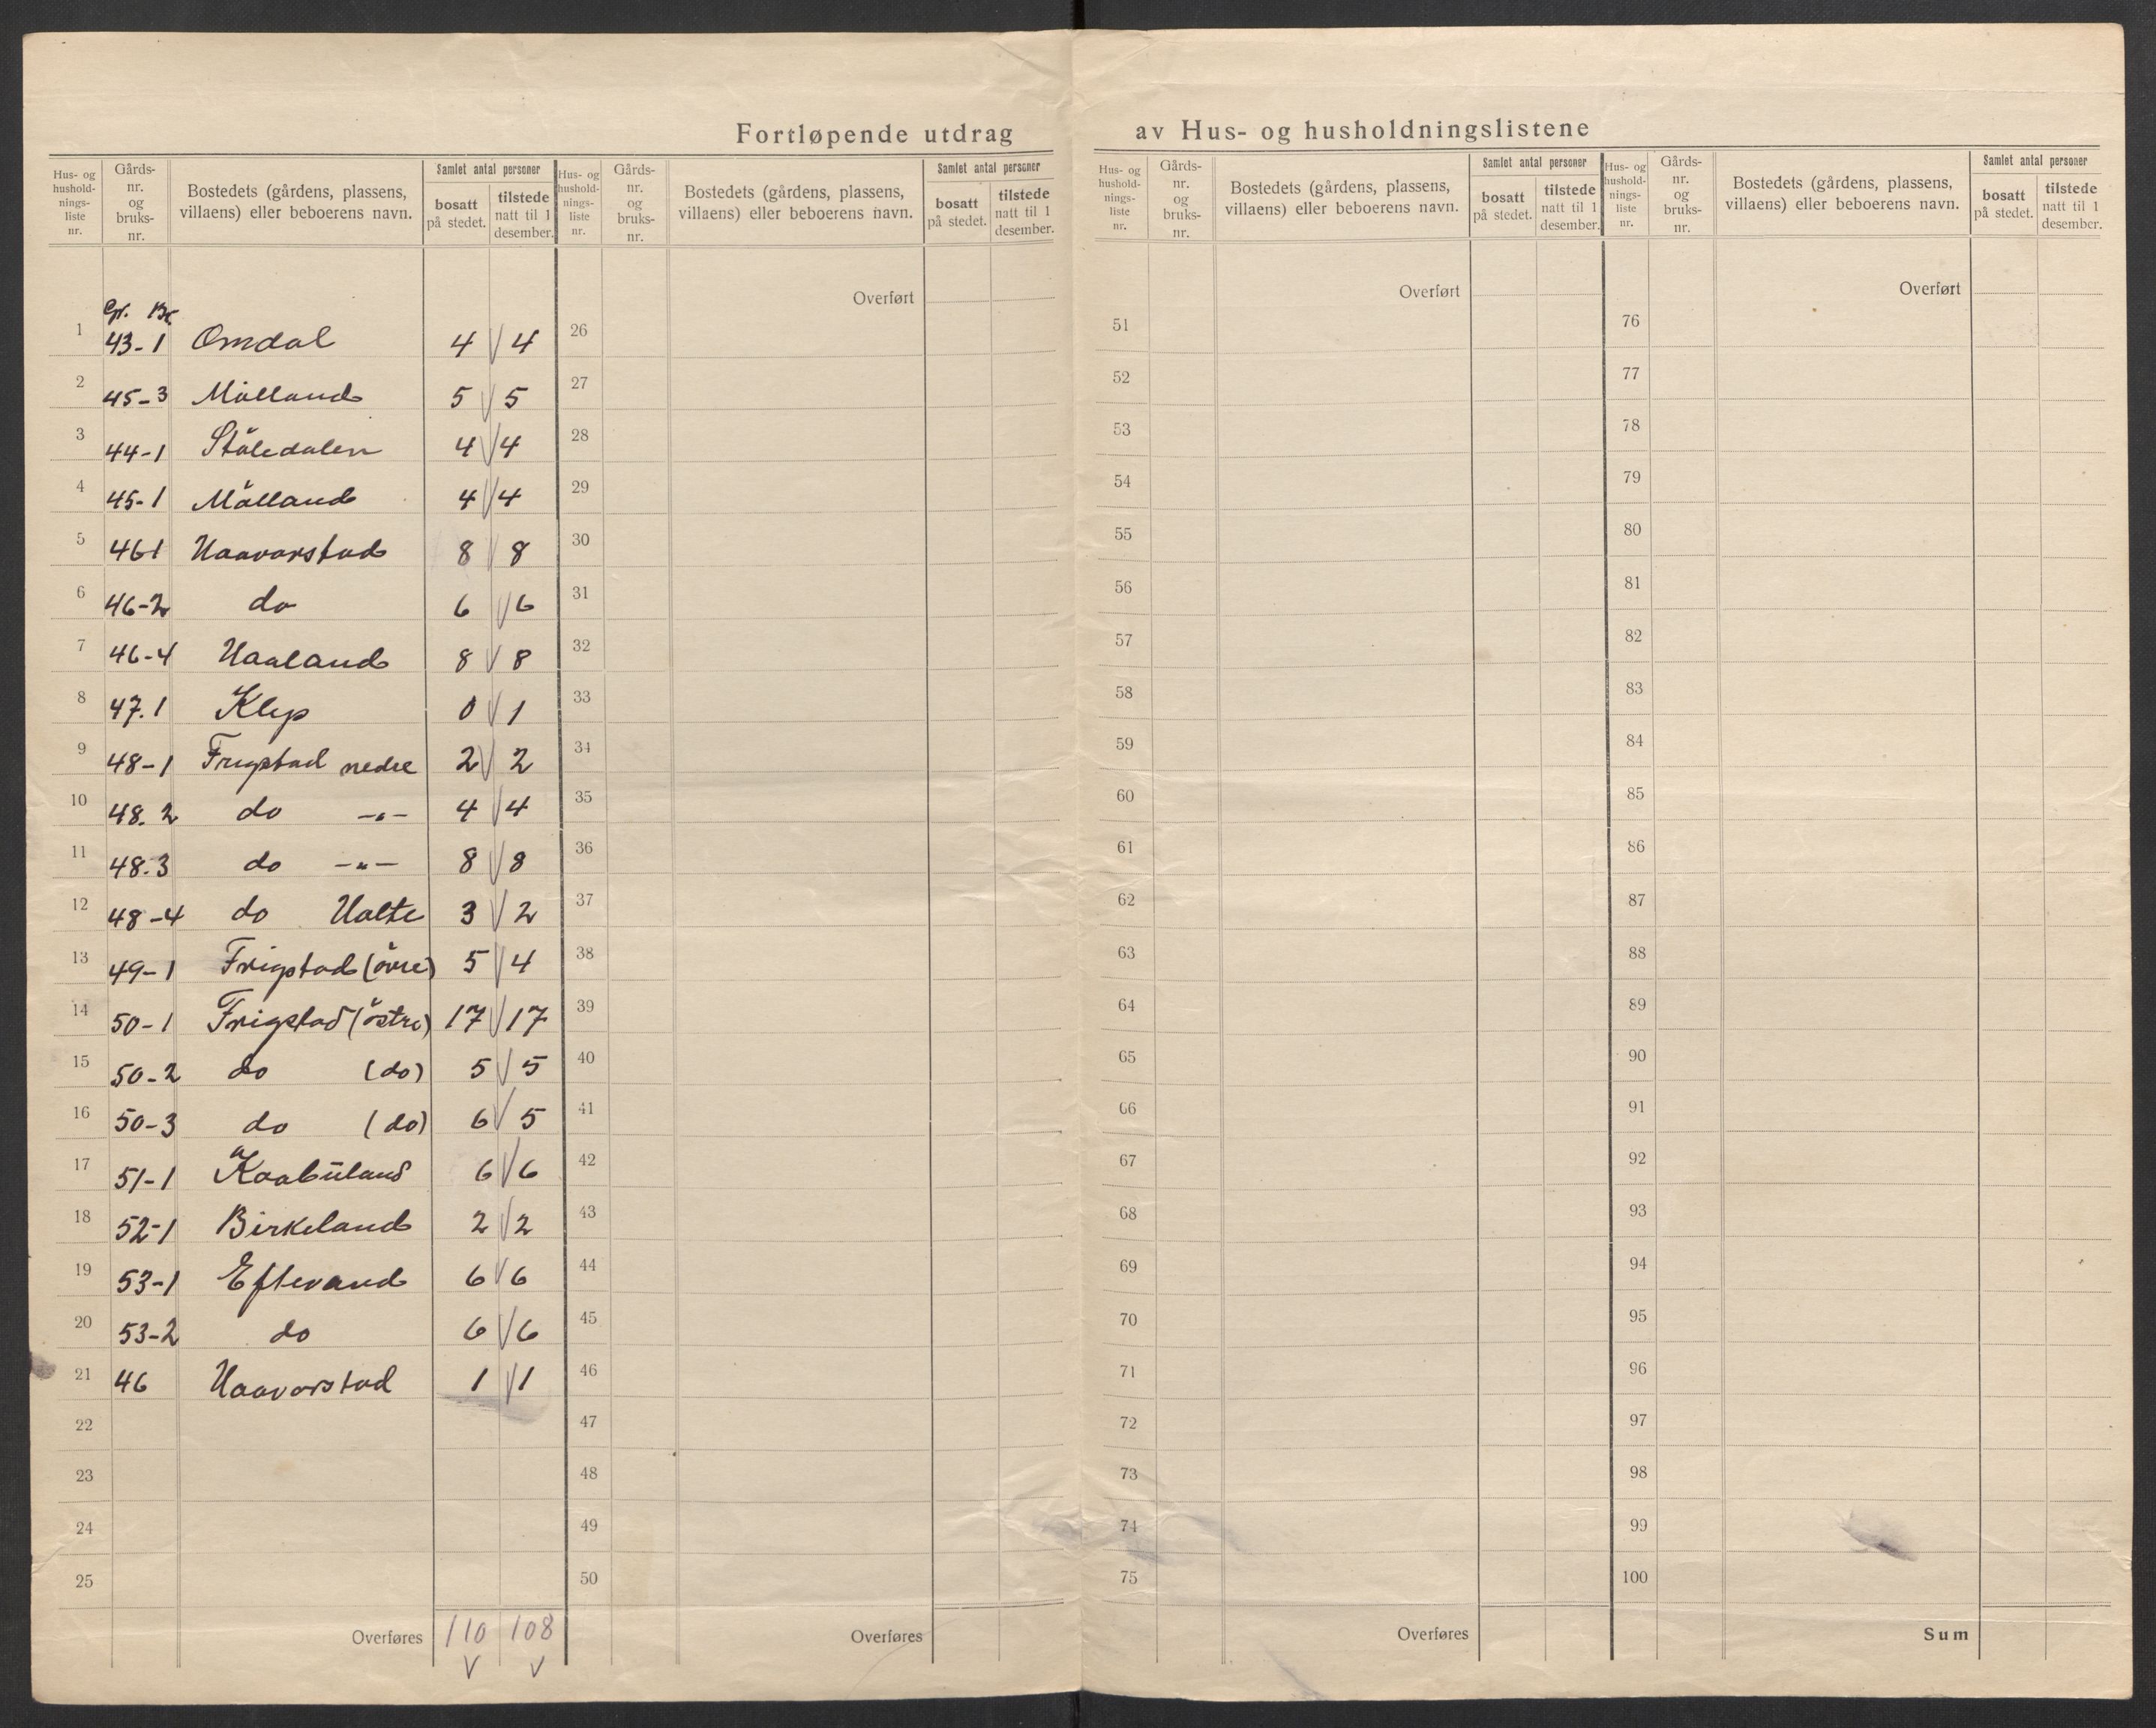 Fortløpende utdrag av Hus- og husholdningslistene
Hus- og hushold- nings- liste nr. | Gårds- nr. og bruks- nr. | Bostedets (gårdens, plassens, villaens) eller beboerens navn. | Samlet antal personer | bosatt på stedet. | tilstede natt til 1 desember.
Gr. Br.
1 43-1 Omdal 4 4
2 45-3 Målland 5 5
3 44-1 Ståledalen 4 4
4 45-1 Målland 4 4
5 46 1 Haavarstad 8 8
6 46-2 do 6 6
7 46-4 Haaland 8 8
8 47.1 Klep 0 1
9 48-1 Frigstad nedre 2 2
10 48.2 do -"- 4 4
11 48.3 do -"- 8 8
12 48-4 do Holte 3 2
13 49-1 Frigstad (övre) 5 4
14 50-1 Frigstad (östre) 17 17
15 50-2 do (do) 5 5
16 50-3 do (do) 6 5
17 51-1 Kaabuland 6 6
18 52-1 Birkeland 2 2
19 53-1 Eftevand 6 6
20 53-2 do 6 6
21 46 Haavarstad 1 1
22
23
24
25
Overføres 110 108
Hus- og hushold- nings- liste nr. | Gårds- nr. og bruks- nr. | Bostedets (gårdens, plassens, villaens) eller beboerens navn. | Samlet antal personer | bosatt på stedet. | tilstede natt til 1 desember.
Overført
26
27
28
29
30
31
32
33
34
35
36
37
38
39
40
41
42
43
44
45
46
47
48
49
50
Overføres
Hus- og hushold- nings- liste nr. | Gårds- nr. og bruks- nr. | Bostedets (gårdens, plassens, villaens) eller beboerens navn. | Samlet antal personer | bosatt på stedet. | tilstede natt til 1 desember.
Overført
51
52
53
54
55
56
57
58
59
60
61
62
63
64
65
66
67
68
69
70
71
72
73
74
75
Overføres
Hus- og hushold- nings- liste nr. | Gårds- nr. og bruks- nr. | Bostedets (gårdens, plassens, villaens) eller beboerens navn. | Samlet antal personer | bosatt på stedet. | tilstede natt til 1 desember.
Overført
76
77
78
79
80
81
82
83
84
85
86
87
88
89
90
91
92
93
94
95
96
97
98
99
100
Sum